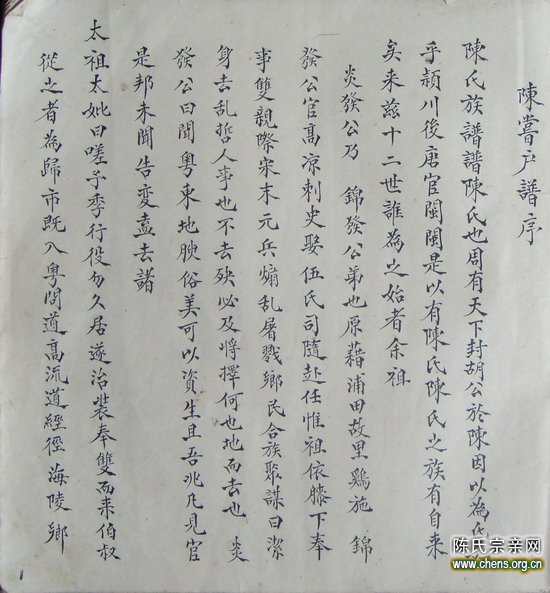 陳嘗戶譜序
陳氏族譜譜陳氏也周有天下封胡公於陳因以為氏
乎潁川後唐官閩閩是以有陳氏陳氏之族有自來
矣来茲十二世誰為之始者余祖
炎發公乃 錦發公弟也原藉浦田故里鷄施 錦
發公官高凉刺史娶伍氏司隨赴任惟祖依膝下奉
事雙親際宋末元兵煽乱屠戮鄉民合族聚謀曰潔
身去乱哲人事也不去殃必及將擇何也地而去也 炎
發公曰聞粵東地腴俗美可以資生且吾兆凡見官
是邦未聞告变盍去諸
太祖太妣曰嗟予季行役勿久居遂治裝奉雙而来伯叔
從之者為歸市既入粵閒道高流道經徑海陵鄉
1
陈氏宗亲网
www.chens.org.cn